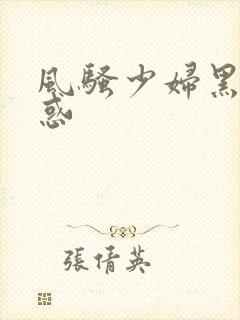 風騷少婦黑
惑
張倩英